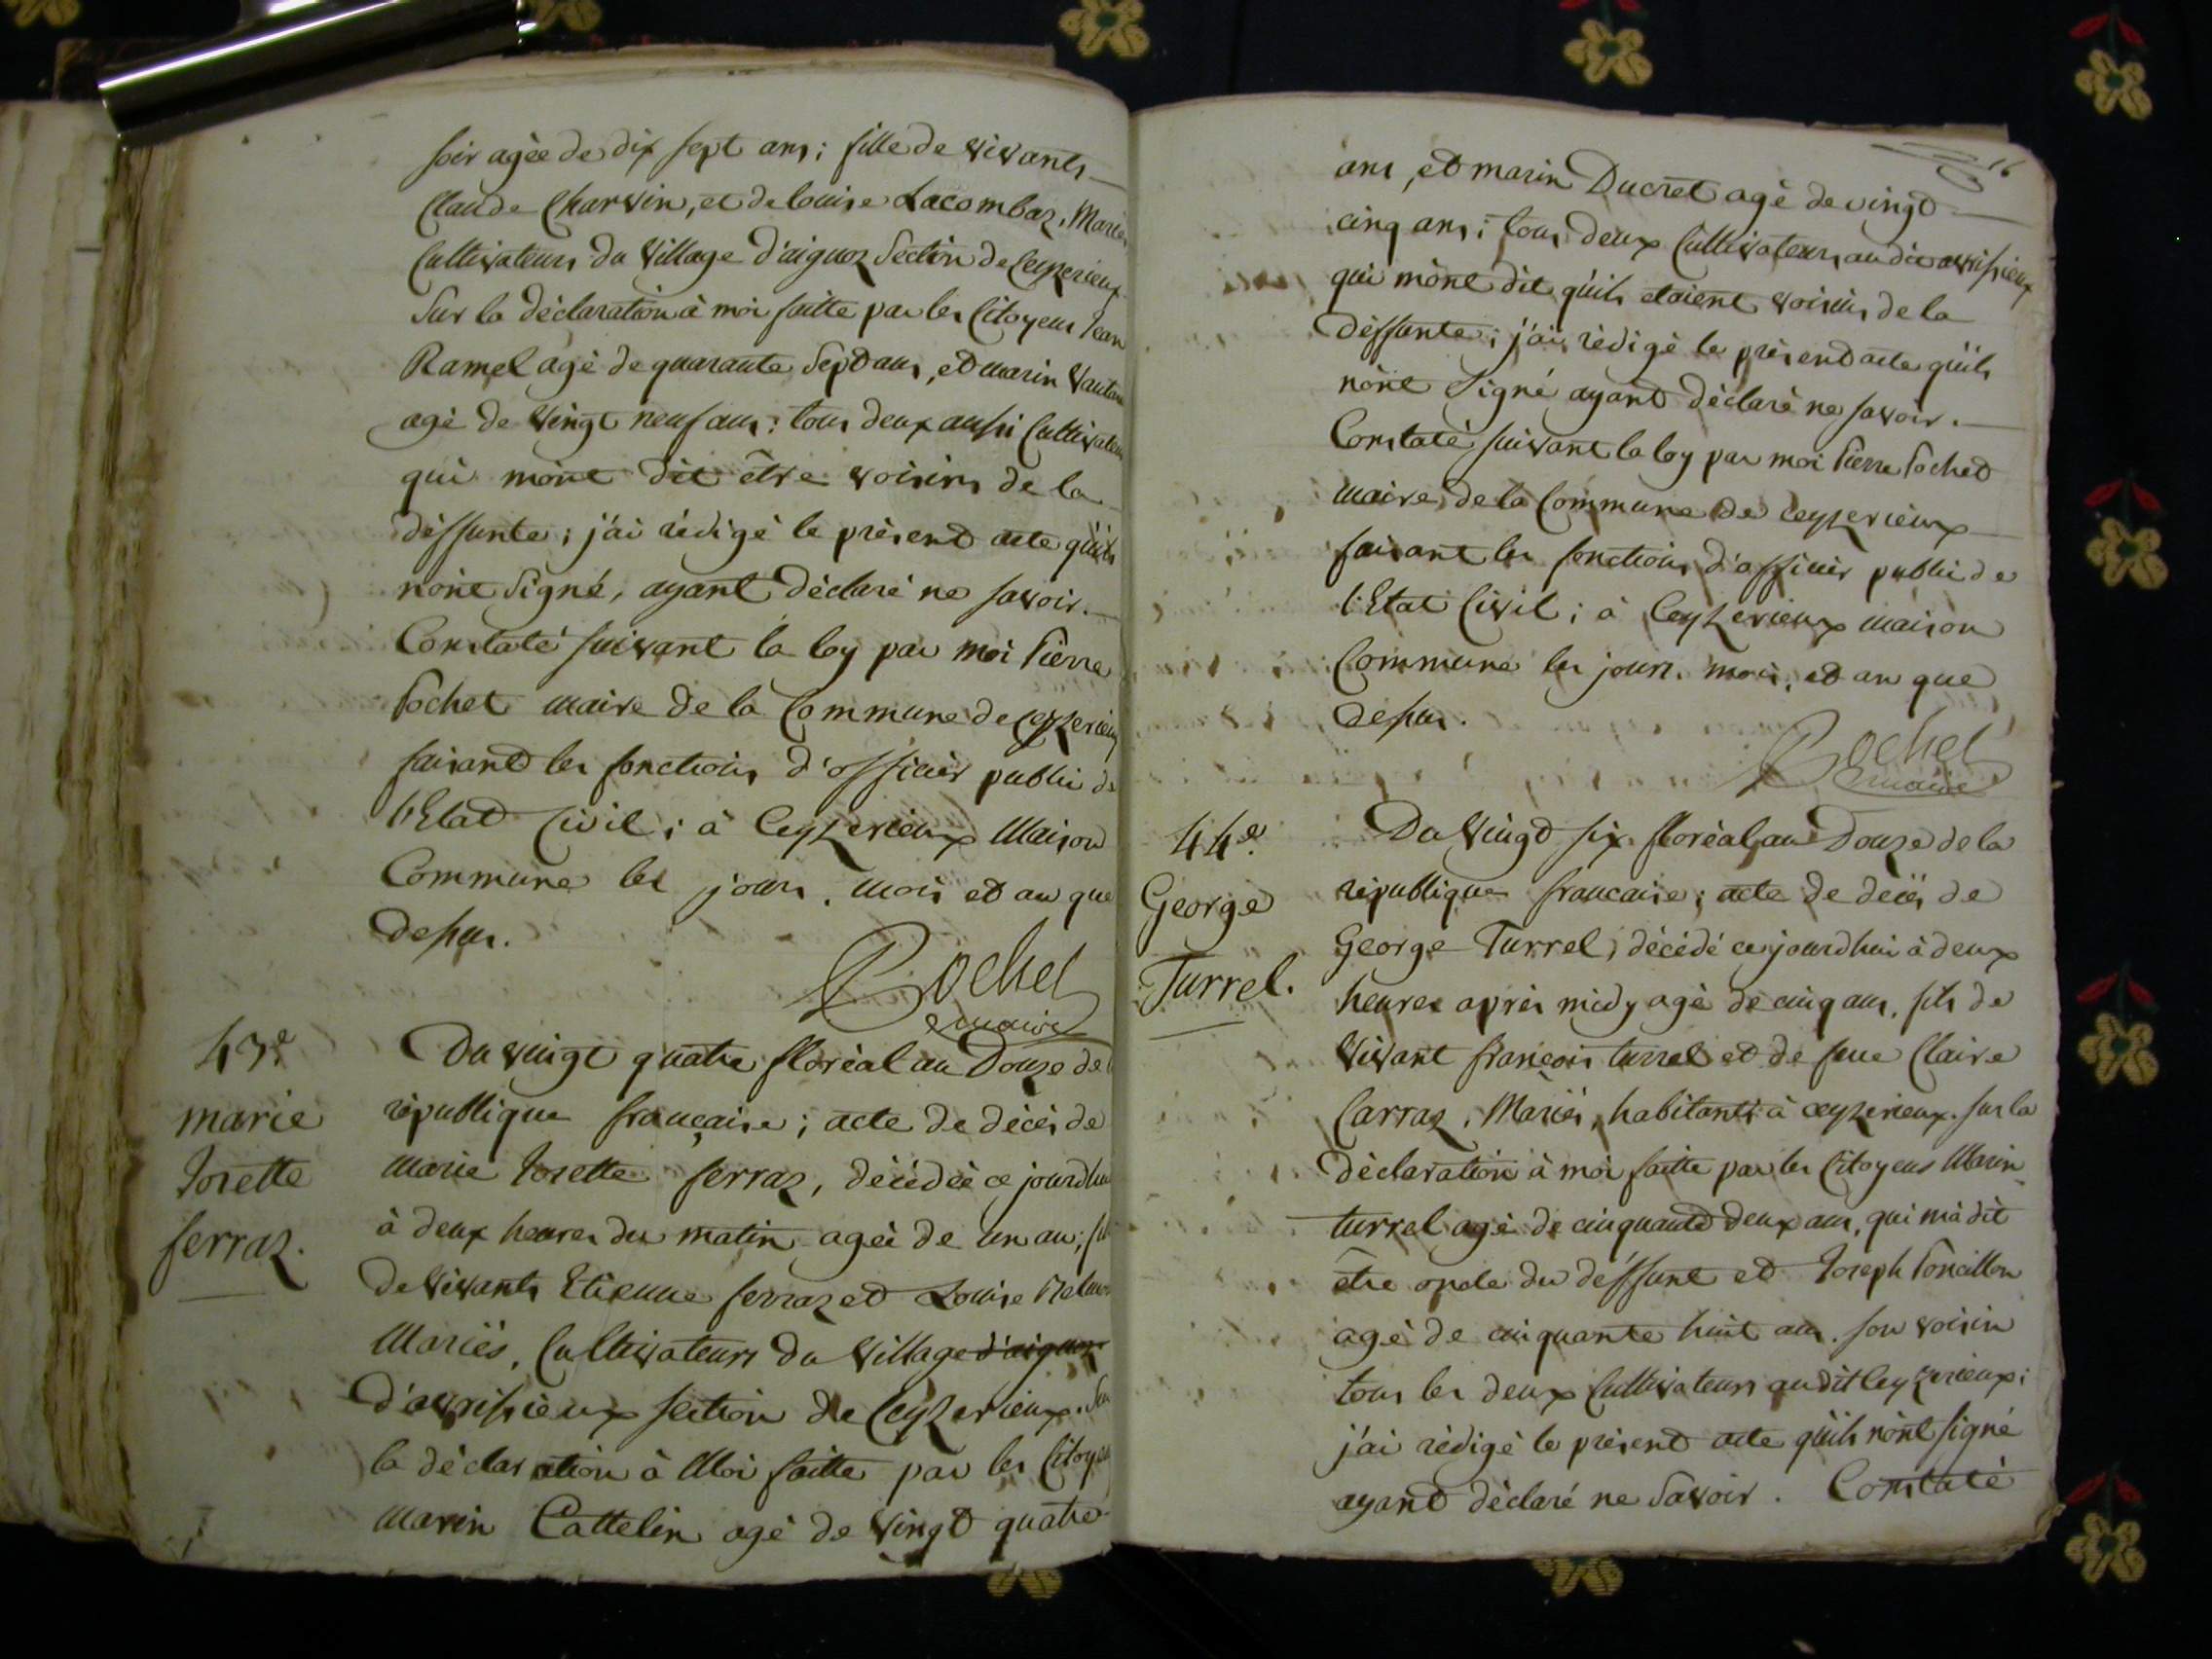 soir agèe de dix sept ans; fille de vivants
Claude Charvin, et de louise Lacombaz, Mariés
Cultivateurs du Village d'aignoz Section de Ceyzerieux
Sur la dèclaration à moi faitte par les Citoyens Jean
Ramel agè de quarante Sept ans, et marin
agè de Vingt neuf ans: tous deux aussi Cultivateurs
qui mònt dit être voisins de la
dèffunte; j'ai rèdigè le prèsent acte qu'ils
nònt Signé, ayant dèclarè ne savoir.
Constatè suivant la loy par moi Pierre
Pochet maire de la Commune de Ceyzerieux
faisant les fonctions d'officier public de
l'Etat Civil; à Ceyzerieux Maison
Commune les jours, mois et an que
dessus.
Pochet
maire
43e
marie
Josette
ferraz.
Du vingt quatre floréal an Douze de
rèpublique française; acte de dècès de
Marie Josette ferraz, dècèdèe ce jourdhui
à deux heures du matin agèe de un an; fille
de vivants Etienne ferraz et Louise
Mariés, Cultivateurs du Village d'aignoz
d'avrissieux section de Ceyzerieux. Sur
la dèclaration à Moi faitte par les Citoyens
Marin Cattelin agè de Vingt quatre
16
ans, et marin Ducret agè de vingt
cinq ans; tous deux Cultivateurs au dit avrissieux
qui mònt dit qu'ils etoient voisins de la
dèffunte; j'ai rèdigè le prèsent acte qu'ils
nònt Signé ayant dèclarè ne savoir.
Constatè suivant la loy par moi Pierre Pochet
maire de la Commune de ceyzerieux
faisant les fonctions d'officier public de
l'Etat Civil; à Ceyzerieux maison
Commune les jours, mois, et an que
dessus.
Pochet
maire
44e.
George
Turrel.
Du Vingt six floréal an Douze de la
rèpublique francaise; acte de dècès de
George Turrel, décédé ce jourdhui à deux
heures après midy agè de cinq ans, fils de
Vivant françois turrel et de feue Claire
Carraz, Mariès, habitants à ceyzerieux. sur la
dèclaration à moi faitte par les Citoyens Marin
turrel agè de cinquante deux ans, qui mà dit
être oncle du dèffunt et Joseph Poncillon
agè de cinquante huit ans. son voisin
tous les deux Cultivateurs audit Ceyzerieux;
j'ai rèdigè le prèsent acte qu'ils nònt signé
ayant dèclaré ne Savoir. Constaté